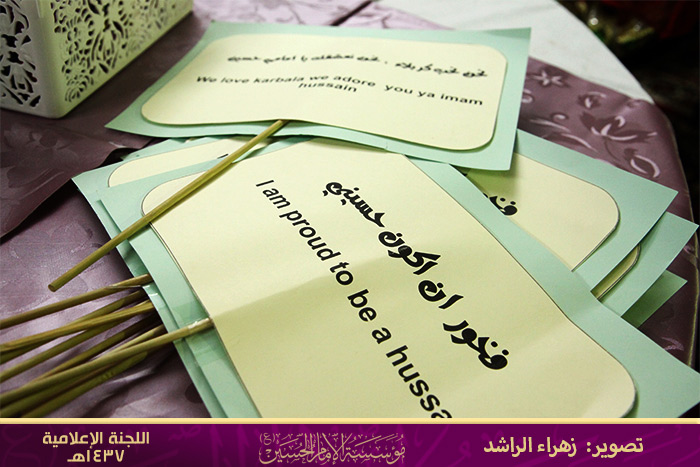 نحن نحب كربلاء ، نحن نعشقك يا امامي حسين
We love karbala we adore you ya imam
hussain
فخور ان اكون حسيني
I am proud to be a hussa
فخو
تصوير: زهراء الراشد
مؤسسة الإمام الحسين (ع)
اللجنة الإعلامية
١٤٣٧هـ